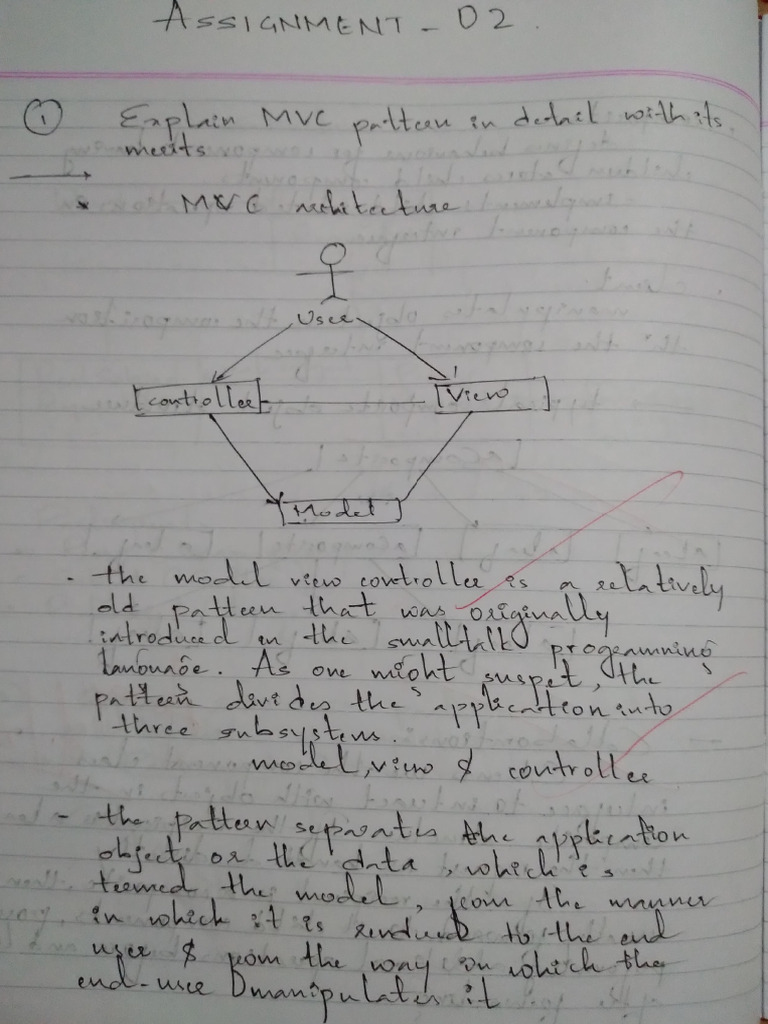 ASSIGNMENT - 02.
① Explain MVC pattern in detail with its
merits
* MVC architecture
User
controller
View
Model
. the model view controller is a relatively
old pattern that was originally
introduced in the smalltalk programming
language. As one might suspet, the
pattern divides the application into
three subsystems.
model, view & controller
- the pattern separates the application
object or the data, which is
termed the model, from the manner
in which it is rendued to the end
user & from the way in which the
end-user manipulates it